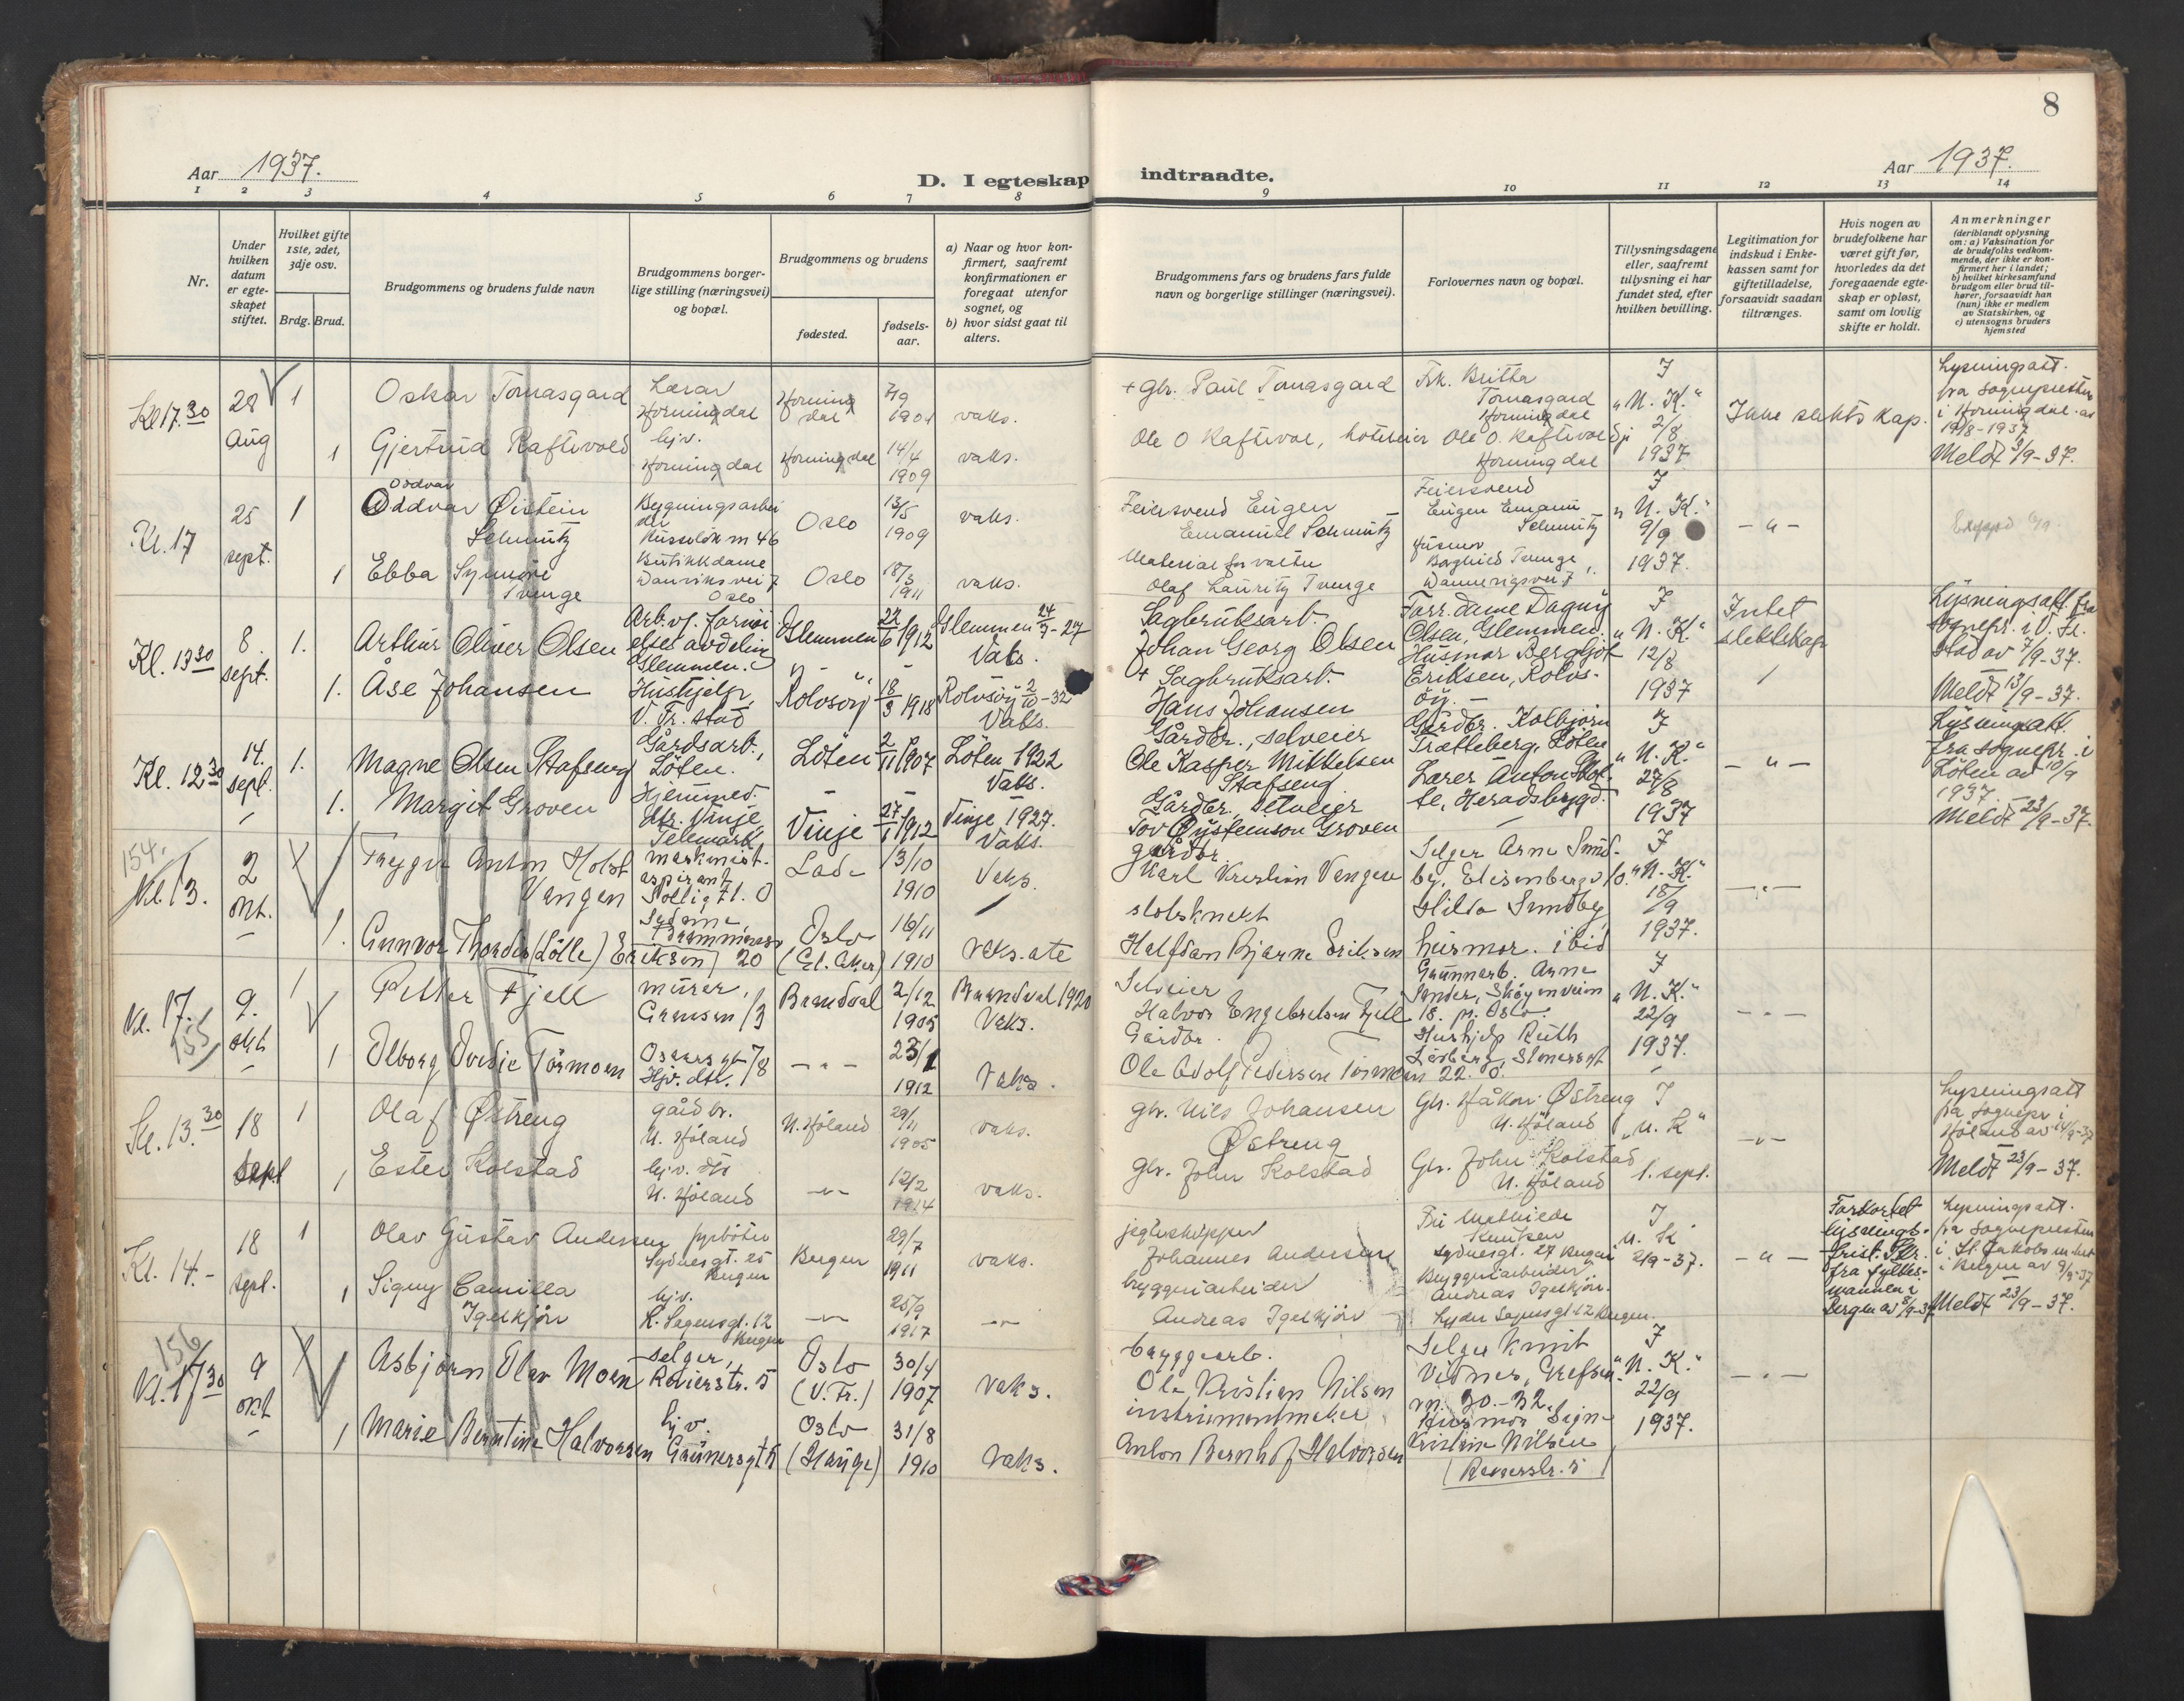 8
Aar 1937.
D. I egteskap indtraadte.
Aar 1937.
1 2 3 4 5 6 7 8 9 10 11 12 13 14
Nr.
Under hvilken datum er egte-skapet stiftet.
Hvilket gifte 1ste, 2det, 3dje osv.
Brdg. Brud.
Brudgommens og brudens fulde navn
Brudgommens borger-lige stilling (næringsvei) og bopæl.
Brudgommens og brudens
fødested.
fødsels-aar.
a) Naar og hvor kon-firmert, saafremt konfirmationen er foregaat utenfor sognet, og
b) hvor sidst gaat til alters.
Brudgommens fars og brudens fars fulde navn og borgerlige stillinger (næringsvei).
Forlovernes navn og bopæl.
Tillysningsdagene eller, saafremt tillysning ei har fundet sted, efter hvilken bevilling.
Legitimation for indskud i Enke-kassen samt for giftetilladelse, forsaavidt saadan tiltrænges.
Hvis nogen av brudefolkene har været gift før, hvorledes da det foregaaende egte-skap er opløst, samt om lovlig skifte er holdt.
Anmerkninger (deriblandt oplysning om: a) Vaksination for de brudefolks vedkom-mende, der ikke er kon-firmert her i landet; b) hvilket kirkesamfund brudgom eller brud til-hører, forsaavidt han (hun) ikke er medlem av Statskirken, og c) utensogns bruders hjemsted
Kl 17.30 28 Aug 1 Oskar Tomasgard Lærar Horningdal Horningdal 7/9 1901 vaks.
+ Gbr. Paul Tomasgard Frk. Britha Tomasgard Horningdal I "N. K." 2/8 1937 Ikke slektskap. Lysningsatt. fra sognepresten i Horningdal av 19/8-1937 Meldt 3/9-37.
1 Gjertrud Raftevold hjv. Horningdal Horningdal 14/4 1909 vaks.
Ole O Raftevol, hoteleier Ole O. Raftevold Horningdal
Kl. 17 25 sept. 1 Oddvar Oddvar Øistein Schmitz Bygningsarbeider 46 Oslo 13/5 1909 vaks.
Feiersvend Eugen Emanuel Schmitz Feiersvend Eugen Schmitz I "N. K." 9/9 1937. - " -
1 Ebba Synnøve Tvenge Butikkdame Oslo Oslo 18/3 1911 vaks.
Materialforvalter Olaf Lauritz Tvenge Husmor Borghild Tvenge,
Kl. 13 30 8. sept. 1. Arthur Oliver Olsen Glemmen. Glemmen 22/6 1912 Glemmen 24/7-27 Vaks.
Sagbruksarb. Johan Georg Olsen Dagny Olsen, Glemmen. I "N. K." 12/8 1937 Intet slektskap Lysningsatt. fra sognepr. i V. Fr. stad av 7/9-37. Meldt 13/9-37.
1. Åse Johansen Hushjelp, V. Fr. stad Rolvsøy 18/3 1918 Rolvsøy 2/10-32 Vaks.
+ Sagbruksarb. Hans Johansen Husmor Bergljot Eriksen, Rolvsøy.
Kl. 12 30 14. sept. 1. Magne Olsen Stafseng Gårdsarb., Løten. Løten 2/11 1907 Løten 1922 Vaks.
Gårdbr., selveier Ole Kasper Mikkelsen Stafseng Gårdbr. Kolbjørn Trætteberg, Løten I "N. K." 27/8 1937 - " - Lysningsatt. fra sognepr. i Løten av 10/9 1937 Meldt 23/9-37.
1. Margit Groven Hjemmev. dtr. Vinje, Telemark Vinje 27/1 1912 Vinje 1927. Vaks.
Gårdbr. selveier Tov Øystenson Groven Lærer Anton , Heradsbygd.
154. Kl. 13. 2 okt. Trygve Anton Holst Vangen maskinist-aspirant Lade 13/10 1910 Vaks.
gårdbr. Karl Kristian Vangen Selger Arne Sundby, Elisenbergv 10. I "N. K." 18/9 1937.
1. Gunnvor Thordis (Lølle) Eriksen 20 Oslo (Gl. Aker) 16/11 1910 Vaks. ate
slotsknekt Halfdan Bjarne Eriksen Hilda Sundby, husmor. ibid
Kl. 17. 155 9. okt. 1 Petter Fjell murer, Grensen 13 Brandval 2/12 1905 Brandval 1920 Vaks.
Selveier Halvor Engebretsen Fjell Grunnarb. Arne Sander, Skøyenveien 18. pr. Oslo. I "N. K." 22/9 1937.
1 Olborg Ovedie Tørmoen Oscars gt 78 Hjv. dtr. - " - 23/1 1912 Vaks.
Gårdbr. Ole Adolf Pedersen Tørmoen Hushjelp Ruth 22. O.
Kl. 13.30 18 sept 1 Olaf Østreng gårdbr. N. Høland N. Høland 29/11 1905 vaks.
Gbr. Nils Johansen Østreng Gbr. Håkon Østreng N. Høland I "N. K" 1. sept. - " - Lysningsatt fra sognepr i Høland av 14/9-37 Meldt 23/9-37.
1 Ester Kolstad hjv. dtr N. Høland - " - 12/2 1914 vaks.
Gbr. John Kolstad Gbr. John Kolstad N. Høland
Kl. 14.- 18 sept. 1 Olav Gustav Andersen fyrbøter Sydnesgt. 25 Bergen Bergen 29/7 1911 vaks.
jekteskipper Johannes Andersen Fru Mathilde Knutsen Sydnesgt. 27 Bergen I N. K 2/9-37. - " - Forkortet lysnings-frist fra fylkesmannen i Bergen av 8/9-37 Lysningsatt. fra sognepresten i St. Jakobs menighet i Bergen av 9/9-37 Meldt 23/9-37.
1 Signy Camilla Igelkjøn hjv. L. Sagensgt. 12 Bergen - " - 25/9 1917 - " -
bryggeriarbeider Andreas Igelkjøn Bryggeriarbeider Andreas Igelkjøn. Lyder Sagensgt 12 Bergen.
156 Kl. 17 30 9 okt Asbjørn Olav Moen selger, Revierstr. 5 Oslo (V. Fr.) 30/4 1907 Vaks.
byggearb. Ole Kristian Nilsen Selger Knut Vidnes, Grefsen vn. 30-32. I "N. K." 22/9 1937.
1 Marie Berntine Halvorsen hjv. Grünersgt 5 Oslo (Hauge) 31/8 1910 Vaks.
instrumentmaker Anton Bernhof Halvorsen Husmor Signe Kristine Nilsen (Revierstr. 5)